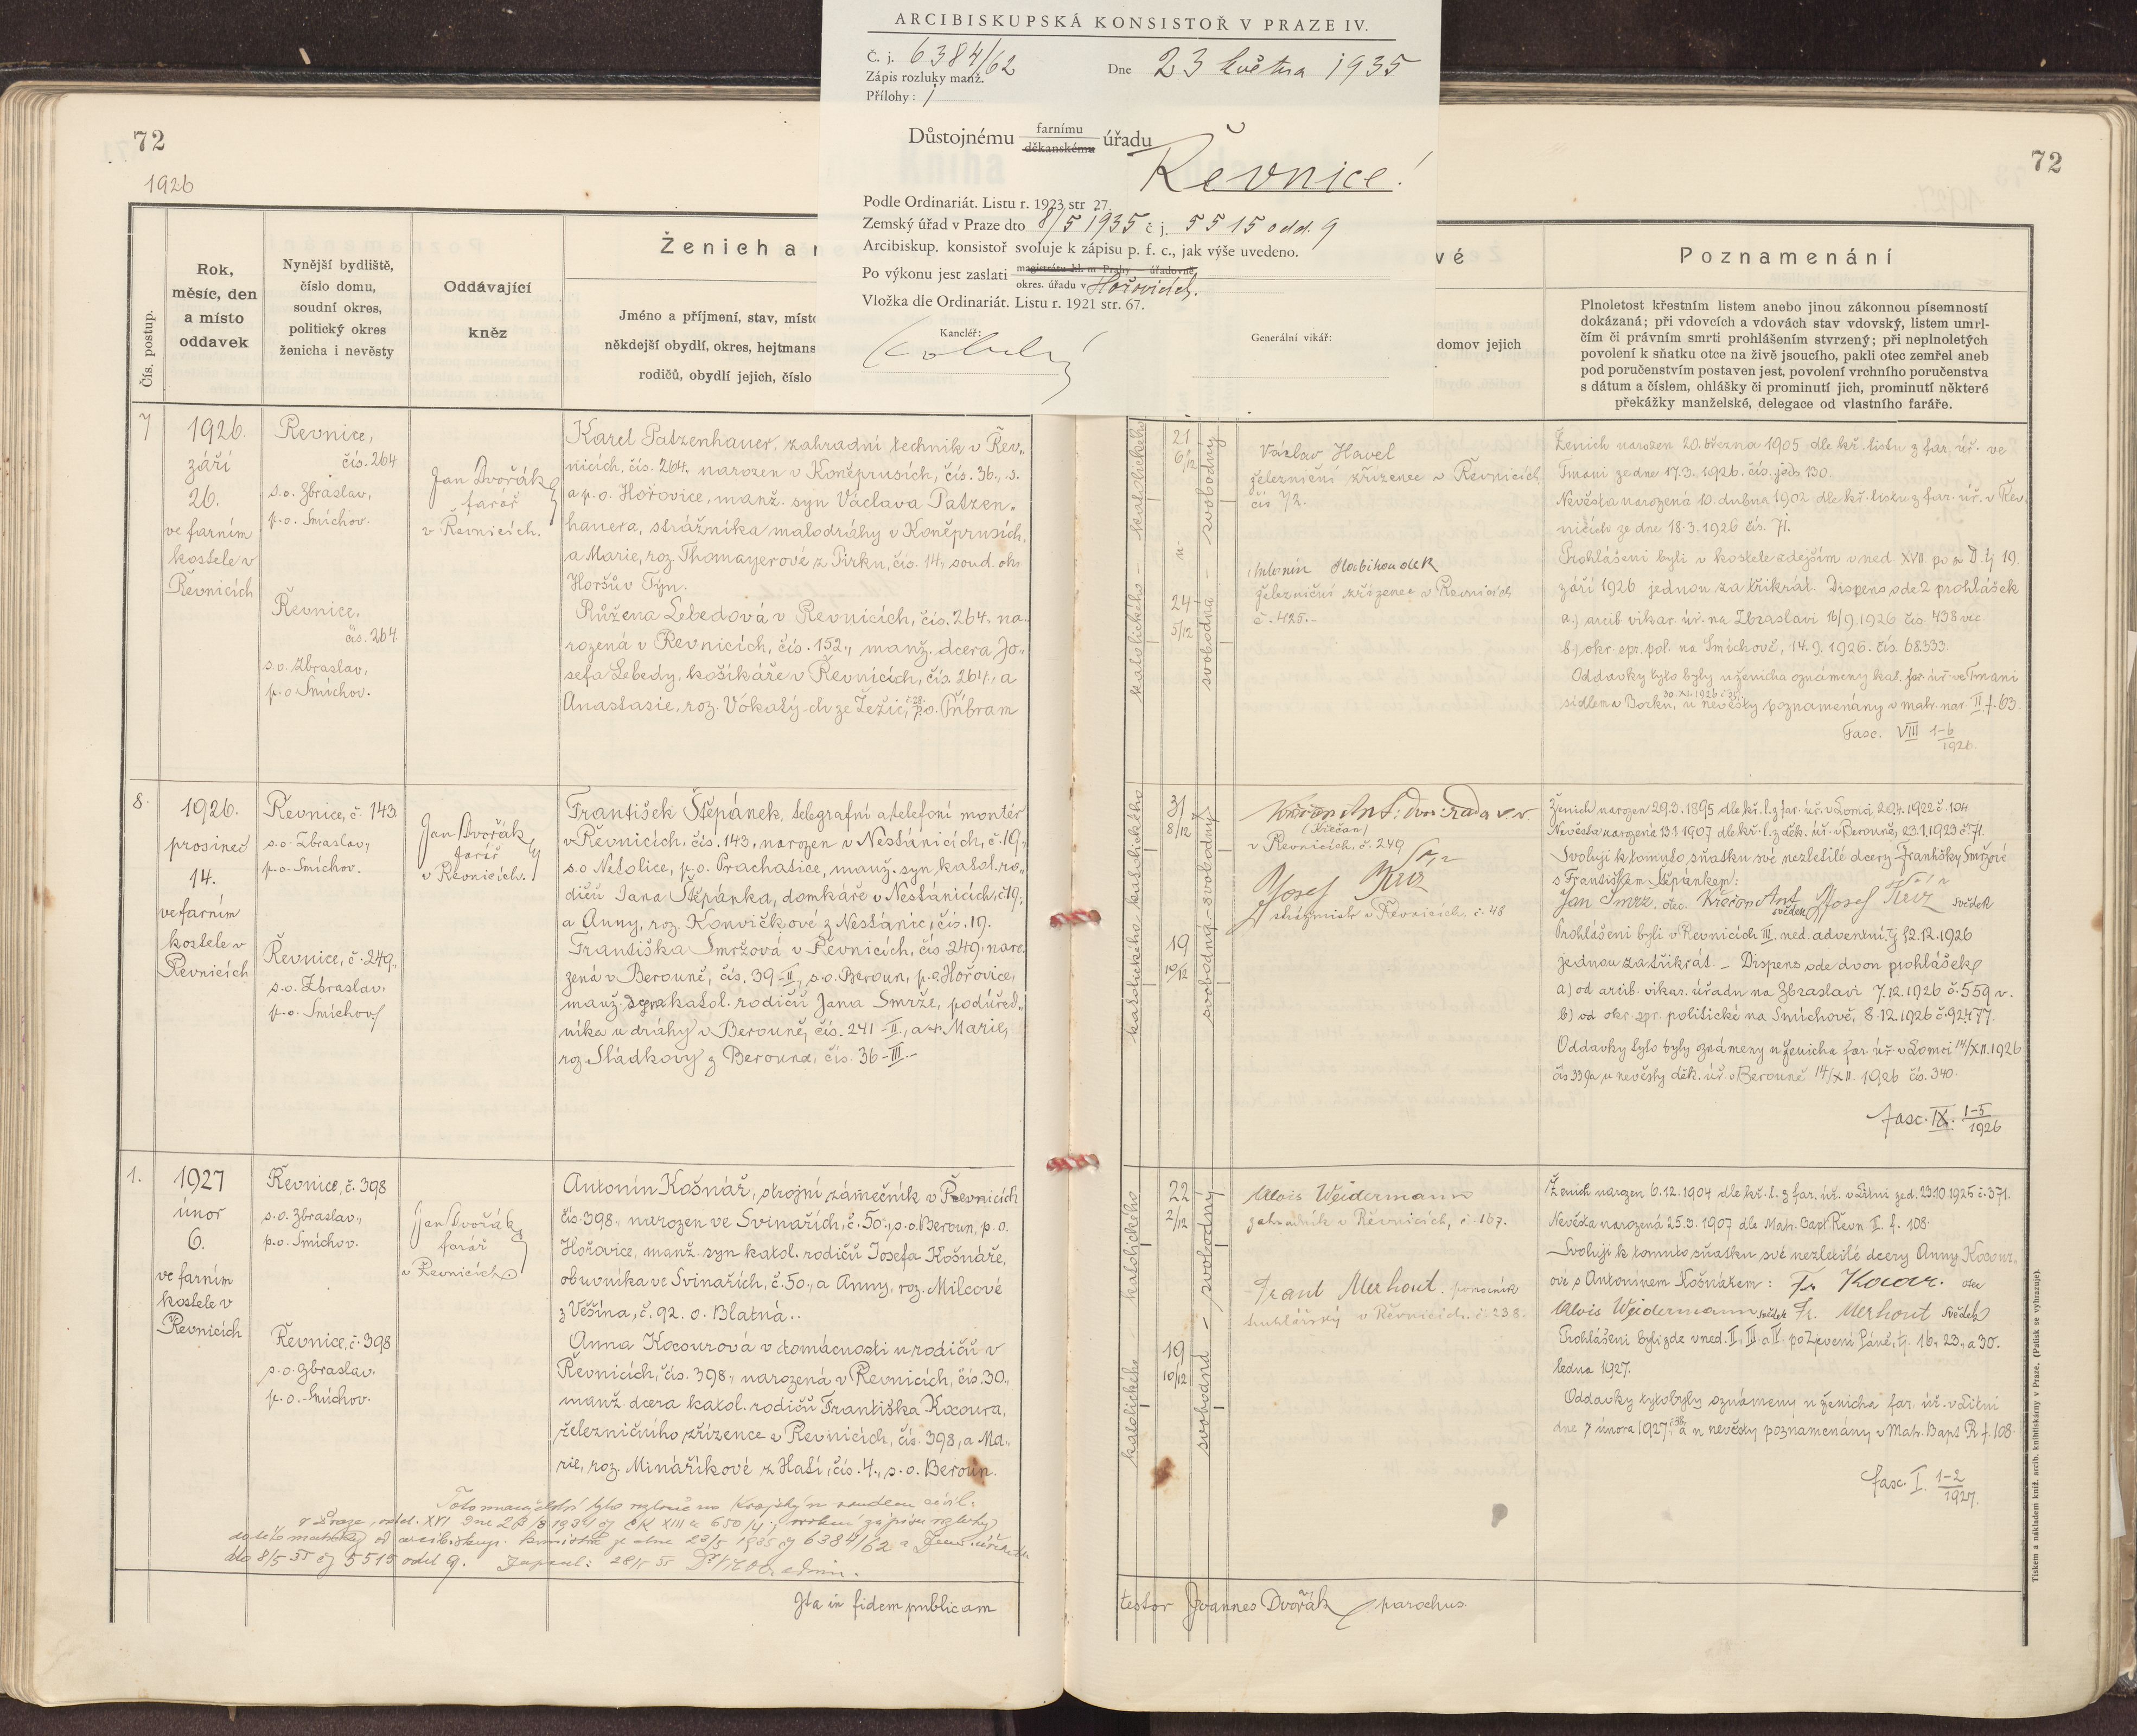 ARCIBISKUPSKÁ KONSISTOŘ V PRAZE IV.
Č. j. 6384/62
Dne 23 května 1935
Zápis rozluky manž.
Přílohy: 1
Důstojnému farnímu děkanskému úřadu
Řevnice!
Podle Ordinariát. Listu r. 1923 str 27.
Zemský úřad v Praze dto 8/5 1935 č j. 5515 odd. 9
Arcibiskup. konsistoř svoluje k zápisu p. f. c., jak výše uvedeno.
Po výkonu jest zaslati magistrátu hl. m Prahy úřadovně
okres. úřadu v Hořovicích.
Vložka dle Ordinariát. Listu r. 1921 str. 67.
Kancléř:
Generální vikář:
72
1926
Čís. postup.
Rok,
měsíc, den
a místo
oddavek
Nynější bydliště,
číslo domu,
soudní okres,
politický okres
ženicha i nevěsty
Oddávající
kněz
Ženich a
Jméno a příjmení, stav, místo
někdejší obydlí, okres, hejtmans
rodičů, obydlí jejich, číslo
7
1926.
září
26.
ve farním
kostele v
Řevnicích
Řevnice,
čís. 264
s.o. Zbraslav,
p.o. Smíchov.
Řevnice,
čís. 264
s.o. Zbraslav,
p.o Smíchov.
Jan Dvořák
farář
v Řevnicích.
Karel Patzenhauer, zahradní technik v Řev„
nicích, čís. 264, narozen v Koněprusích, čís. 36., s.
a p.o. Hořovice, manž. syn Václava Patzen„
hauera, strážníka malodráhy v Koněprusích,
a Marie, roz. Thomayerové z Pirku, čís. 14, soud. okr.
Horšův Týn.
Růžena Lebedová v Řevnicích, čís. 264. na„
rozená v Řevnicích, čís. 152., manž. dcera Jo„
sefa Lebedy, košíkáře v Řevnicích, čís. 264., a
Anastasie, roz. Vokatý-ch ze Žežic, č 28. p.o. Příbram
8.
1926.
prosinec
14.
ve farním
kostele v
Řevnicích
Řevnice, č. 143.
s.o. Zbraslav,
p.o. Smíchov.
Řevnice, č. 249.,
s.o. Zbraslav,
p.o. Smíchov
Jan Dvořák
farář
v Řevnicích.
František Štěpánek, telegrafní a telefoní montér
v Řevnicích, čís. 143, narozen v Nestánicích, č. 19,
s.o Netolice, p.o. Prachatice, manž. syn katol. ro„
dičů Jana Štěpánka, domkáře v Nestánicích, č. 19.,
a Anny, roz. Konvičkové z Nestánic, čís. 19.
Františka Smržová v Řevnicích, čís 249, naro„
zená v Berouně, čís. 39-II, s.o. Beroun, p.o. Hořovice,
manž. katol. rodičů Jana Smrže, podúřed„
níka u dráhy v Berouně, čís. 241-II, a Marie,
roz. Sládkovy z Berouna, čís. 36-III.-
1.
1927
únor
6.
ve farním
kostele v
Řevnicích
Řevnice, č. 398
s.o. Zbraslav,
p.o. Smíchov.
Řevnice, č. 398
s.o. Zbraslav.
p.o. Smíchov.
Jan Dvořák
farář
v Řevnicích
Antonín Košnář, strojní zámečník v Řevnicích
čís 398., narozen ve Svinařích, č. 50., s.o. Beroun, p.o.
Hořovice, manž. syn katol. rodičů Josefa Košnáře,
obuvníka ve Svinařích, č. 50., a Anny, roz. Milcové
z Věšína, č. 92. o. Blatná..
Anna Kocourová v domácnosti u rodičů v
Řevnicích, čís. 398., narozená v Řevnicích, čís. 30.,
manž. dcera katol. rodičů Františka Kocoura,
železničního zřízence v Řevnicích, čís. 398, a Ma„
rie, roz. Mináříkové z Hatí, čís. 4., s.o. Beroun.
Toto manželství bylo rozloučeno Krajským soudem civil.
v Praze, odděl. XVI dne
do této matriky od arcibiskup. konsistoře ze dne 23/5 1935 čj 6384/62 a Zem. úřadu
dto 8/5 35 čj 5515 odd 9.
Ita in fidem publicam
72
vé
domov jejich
Poznamenání
Plnoletost křestním listem anebo jinou zákonnou písemností
dokázaná; při vdovcích a vdovách stav vdovský, listem umrl-
čím či právním smrti prohlášením stvrzený; při neplnoletých
povolení k sňatku otce na živě jsoucího, pakli otec zemřel aneb
pod poručenstvím postaven jest, povolení vrchního poručenstva
s dátum a číslem, ohlášky či prominutí jich, prominutí některé
překážky manželské, delegace od vlastního faráře.
katolického – katolického
21
6/12
24
5/12
svobodný – svobodná
Václav Havel
železniční zřízenec v Řevnicích
čís 72.
Antonín
železniční zřízenec v Řevnicích
č. 425.-
Ženich narozen 20. března 1905 dle kř. listu z far. úř. ve
Tmani ze dne 17.3. 1926. čís. jedn 130.
Nevěsta narozená 10. dubna 1902 dle kř. listu z far. úř. v Řev„
nicích ze dne 18.3. 1926 čís. 71.
Prohlášeni byli v kostele zdejším v ned. XVII. po sv D. tj 19.
září 1926 jednou za třikrát. Dispens ode 2 prohlášek
a.) arcib vikar. úř. na Zbraslavi 16/9. 1926 čís. 438 vic
b.) okr spr. pol. na Smíchově, 14. 9. 1926. čís. 68.333.
Oddavky tyto byly u ženicha oznámeny kat. far úř. ve Tmani
sídlem v Borku, 30. XI. 1926 u nevěsty poznamenány v matr. nar II. f. 63.
Fasc. VIII 1-6/1926.
katolického – katolického
31
8/12
19
10/12
svobodný – svobodný
(Křečan)
v Řevnicích, č. 249
Josef Kříž
strážmistr v Řevnicích. č. 48
Ženich narozen 29.3. 1895 dle kř. l. z far. úř. v Lomci 20.4. 1922 č. 104.
Nevěsta narozena 13.1 1907 dle kř. l. z děk. úř. v Berouně, 23.1. 1923 č. 71.
Svoluji k tomuto sňatku své nezletilé dcery Františky Smržové
s Františkem Štěpánkem:
Jan Smrž. otec. Ant svědek Josef Kříž svědek
Prohlášeni byli v Řevnicích III. ned. adventní, tj 12.12. 1926
jednou za třikrát. – Dispens ode dvou prohlášek
a) od arcib. vikar. úřadu na Zbraslavi 7.12. 1926 č. 559 v.
b) od okr. spr. politické na Smíchově, 8.12. 1926 č. 92477.
Oddavky tyto byly oznámeny u ženicha far. úř. v Lomci 14/XII. 1926
čís 339 a u nevěsty děk. úř. v Berouně 14/XII. 1926 čís. 340.
fasc. IX. 1-5/1926
katolického – katolického
22
2/12
19
10/12
svobodný – svobodná
Alois Weidermann
zahradník v Řevnicích, č. 167.
Frant Merhout. pomocník
truhlářský v Řevnicích. č. 238.
Ženich narozen 6.12. 1904 dle kř. l. z far. úř. v Litni zed. 23.10 1925 č. 371.
Nevěsta narozená 25.3. 1907 dle Matr. Bapt. Řevn II. f. 108.
Svoluji k tomuto sňatku své nezletilé dcery Anny Kocour„
ové s Antonínem Košnářem: Fr Kocour. otec
Alois Weidermann svědek Fr. Merhout svědek
Prohlášeni byli zde v ned. II., III. a IV. po Zjevení Páně, tj. 16., 23., a 30.
ledna 1927.
Oddavky tyto byly oznámeny u ženicha far. úř. v Litni
dne 7 února 1927 č 38, a u nevěsty poznamenány v Matr. Bapt R f. 108.
fasc. I. 1-2/1927.
testor Joannes Dvořák parochus
Tiskem a nákladem kníž. arcib. knihtiskárny v Praze. (Patisk se vyhrazuje).